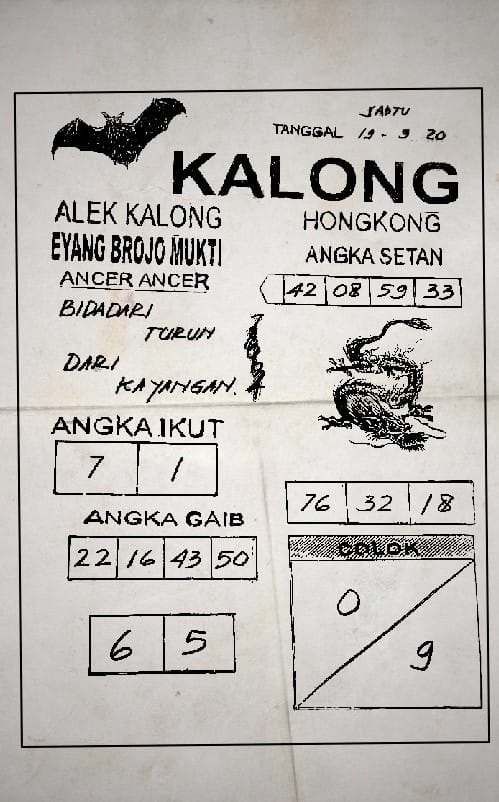 SABTU
TANGGAL 19 - 9 20
KALONG
ALEK KALONG
EYANG BROJO MUKTI
ANCER ANCER
BIDADARI
TURUN
DARI
KAYANGAN.
HONGKONG
ANGKA SETAN
42 08 59 33
ANGKA IKUT
7 1
ANGKA GAIB
22 16 43 50
6 5
76 32 18
COLOK
0
9